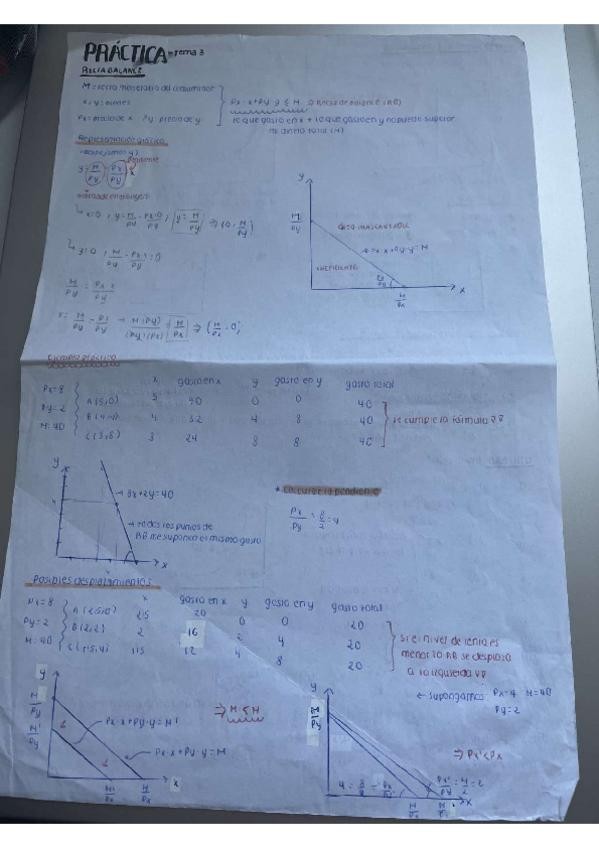 PRÁCTICA tema 3
RECTA BALANCE
M = renta monetaria del consumidor
x, y: bienes
Px = precio de x Py: precio de y
Px·x + Py·y ≤ M Recta de balance (RB)
lo que gasto en x + lo que gasto en y no puede superar
mi dinero total (M)
Representación gráfica
y = M/Py - Px/Py x
pendiente
x=0, y = M/Py - Px·0/Py, y = M/Py ⇒ (0, M/Py)
y
M/Py
Px·x + Py·y = M
Px/Py
M/Px
x
M/Py = Px·x/Py
Ejemplo práctico
Px=8
Py=2
M=40
x gasto en x y gasto en y gasto total
A(5,0) 5 40 0 0 40
B(4,4) 4 32 4 8 40
C(3,8) 3 24 8 8 40
se cumple la fórmula
y
8x+2y=40
todos los puntos de
RB me supone el mismo gasto
x
* Calcular la pendiente
Px/Py = 8/2 = 4
Posibles desplazamientos
Px=8
Py=2
x gasto en x y gasto en y gasto total
A(2,5,0) 2,5 20 0 0 20
B(2,2) 2 16 2 4 20
C(1,5,4) 1,5 12 4 8 20
si el nivel de renta es
menor la RB se desplaza
a la izquierda
y
M/Py
M'/Py
Px·x+Py·y=M'
Px·x+Py·y=M
M'/Px M/Px
x
⇒ M' < M
← supongamos Px=4 M=40
Py=2
y
M/Py
⇒ Px' < Px
4 = 8/2 = Px/Py
Px'/Py = 4/2 = 2
M/Px M/Px'
x